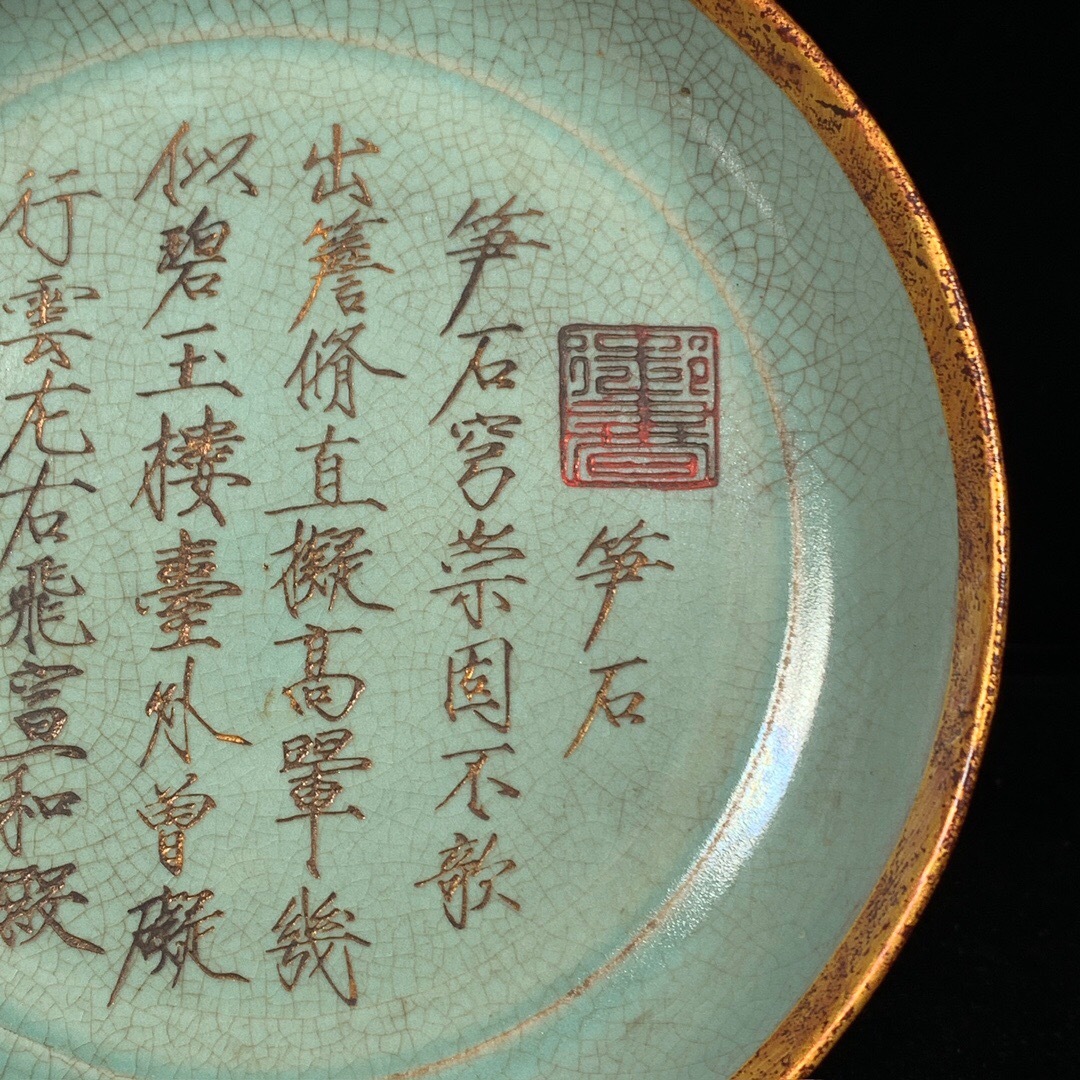 御書
笋石
笋石穹崇固不欹
出簷脩直擬高翬幾
似碧玉樓臺外曾礙
行雲左右飛宣和殿